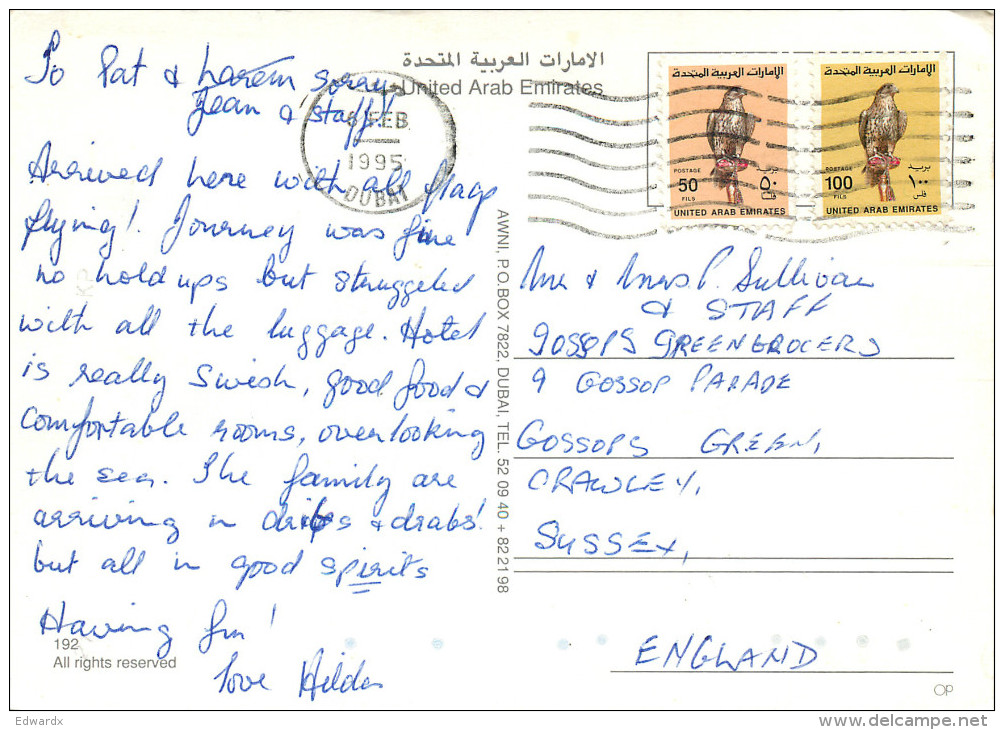 To Pat & harem sorry
Jean & staff!
Arrived here with all flags
flying! Journey was fine
no hold ups but struggled
with all the luggage. Hotel
is really swish, good food &
comfortable rooms, overlooking
the sea. The family are
arriving in dribs & drabs!
but all in good spirits
Having fun!
love Hilda
192
All rights reserved
الامارات العربية المتحدة
United Arab Emirates
6 FEB
1995
DUBAI
AWNI, P.O.BOX 7822, DUBAI, TEL. 52 09 40 + 82 21 98
الإمارات العربية المتحدة
POSTAGE بريد
50 ٥٠
FILS فلس
UNITED ARAB EMIRATES
الإمارات العربية المتحدة
POSTAGE بريد
100 ١٠٠
FILS فلس
UNITED ARAB EMIRATES
Mr & Mrs P. Sullivan
& STAFF
GOSSOPS GREENGROCERS
9 GOSSOP PARADE
GOSSOPS GREEN,
CRAWLEY,
SUSSEX,
ENGLAND
OP
Edwardx
www.delcampe.net